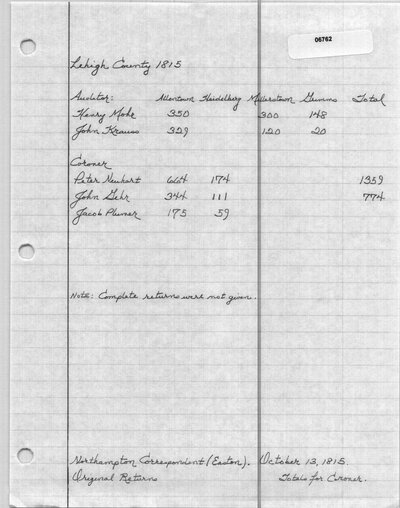 06762
Lehigh County 1815
Auditor: Allentown Heidelberg Millerstown Grimms Total
Henry Mohr 350 300 148
John Krauss 329 120 20
Coroner
Peter Neuhart 664 174 1359
John Gehr 344 111 774
Jacob 175 59
Note: Complete returns were not given.
Northampton Correspondent (Easton). October 13, 1815.
Original Returns Totals for Coroner.